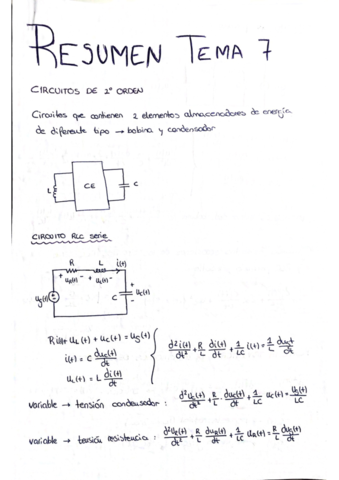 RESUMEN TEMA 7
CIRCUITOS DE 2º ORDEN
Circuitos que contienen 2 elementos almacenadores de energía
de diferente tipo → bobina y condensador
L CE C
CIRCUITO RLC serie
R L i(t)
+ u_R(t) - + u_L(t) - +
u_g(t) C u_c(t)
-
R i(t) + u_L(t) + u_c(t) = u_g(t)
i(t) = C du_c(t)/dt
d²i(t)/dt² + R/L di(t)/dt + 1/LC i(t) = 1/L du_g t/dt
u_L(t) = L di(t)/dt
variable → tensión condensador : d²u_c(t)/dt² + R/L · du_c(t)/dt + 1/LC u_c(t) = u_g(t)/LC
variable → tensión resistencia : d²u_R(t)/dt² + R/L du_R(t)/dt + 1/LC u_R(t) = R/L du_g(t)/dt